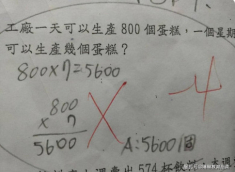 工廠一天可以生產 800 個蛋糕，一個星期
可以生產幾個蛋糕？
800×7=5600
800
× 7
5600
A:5600個
-4
574 杯